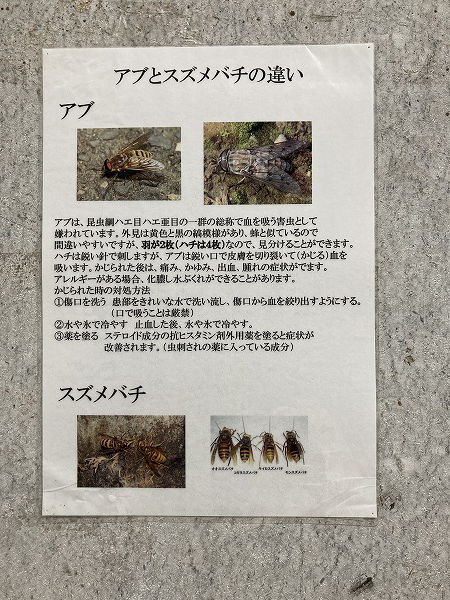 アブとスズメバチの違い
アブ
アブは、昆虫綱ハエ目ハエ亜目の一群の総称で血を吸う害虫として
嫌われています。外見は黄色と黒の縞模様があり、蜂と似ているので
間違いやすいですが、羽が2枚(ハチは4枚)なので、見分けることができます。
ハチは鋭い針で刺しますが、アブは鋭い口で皮膚を切り裂いて(かじる)血を
吸います。かじられた後は、痛み、かゆみ、出血、腫れの症状がでます。
アレルギーがある場合、化膿し水ぶくれができることがあります。
かじられた時の対処方法
①傷口を洗う 患部をきれいな水で洗い流し、傷口から血を絞り出すようにする。
(口で吸うことは厳禁)
②水や氷で冷やす 止血した後、水や氷で冷やす。
③薬を塗る ステロイド成分の抗ヒスタミン剤外用薬を塗ると症状が
改善されます。(虫刺されの薬に入っている成分)
スズメバチ
オオスズメバチ
コガタスズメバチ
キイロスズメバチ
モンスズメバチ